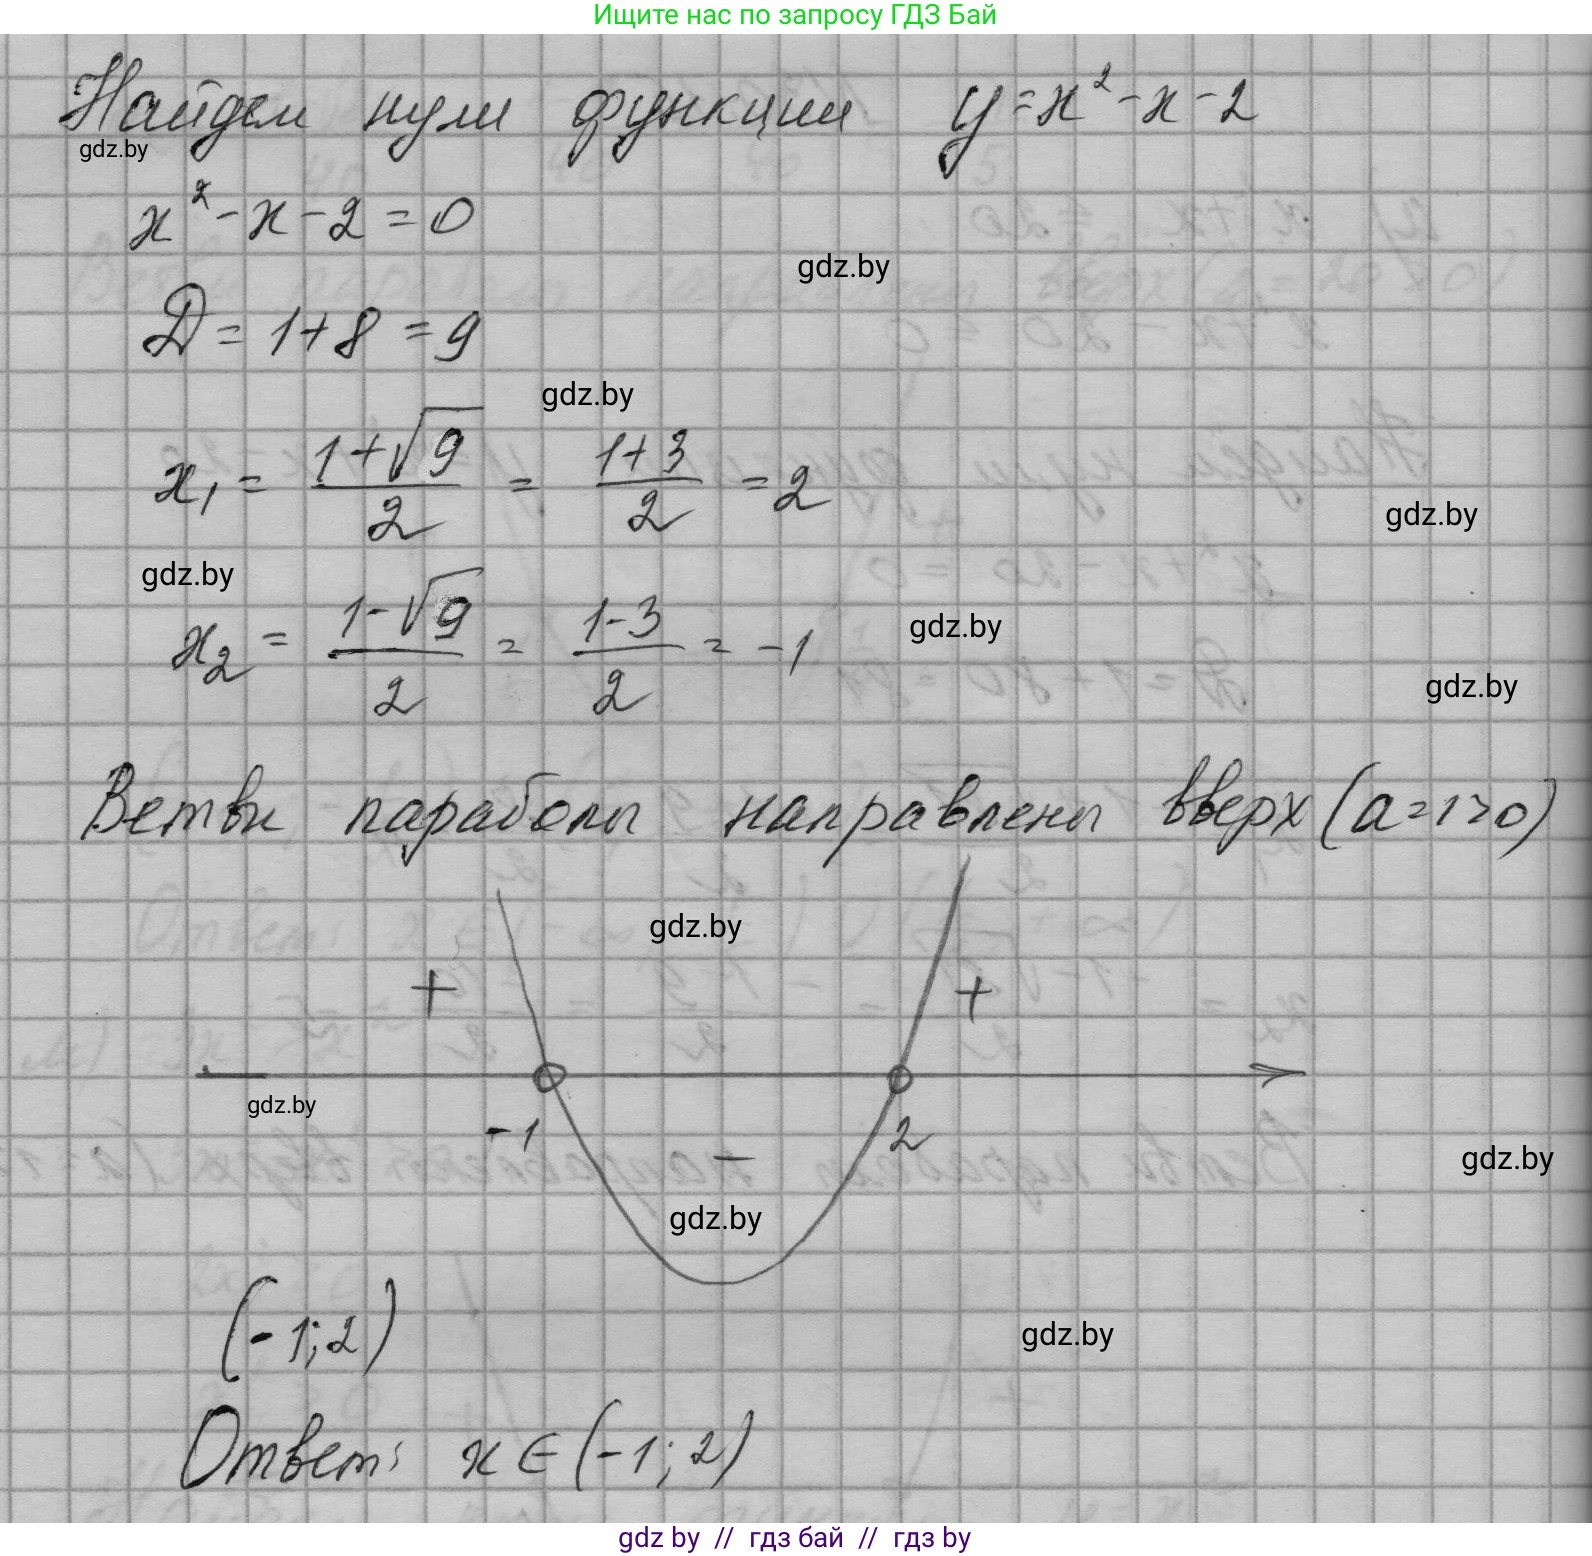 Ищите нас по запросу ГДЗ Бай
Найдем нули функции y=x²-x-2
gdz.by
x²-x-2=0
gdz.by
D=1+8=9
gdz.by
x₁ = (1+√9)/2 = (1+3)/2 = 2
gdz.by
gdz.by
x₂ = (1-√9)/2 = (1-3)/2 = -1
gdz.by
gdz.by
Ветви параболы направлены вверх (a=1>0)
gdz.by
+ +
gdz.by
-1 2
-
gdz.by
gdz.by
(-1;2)
gdz.by
Ответ: x∈(-1;2)
gdz by // гдз бай // гдз by